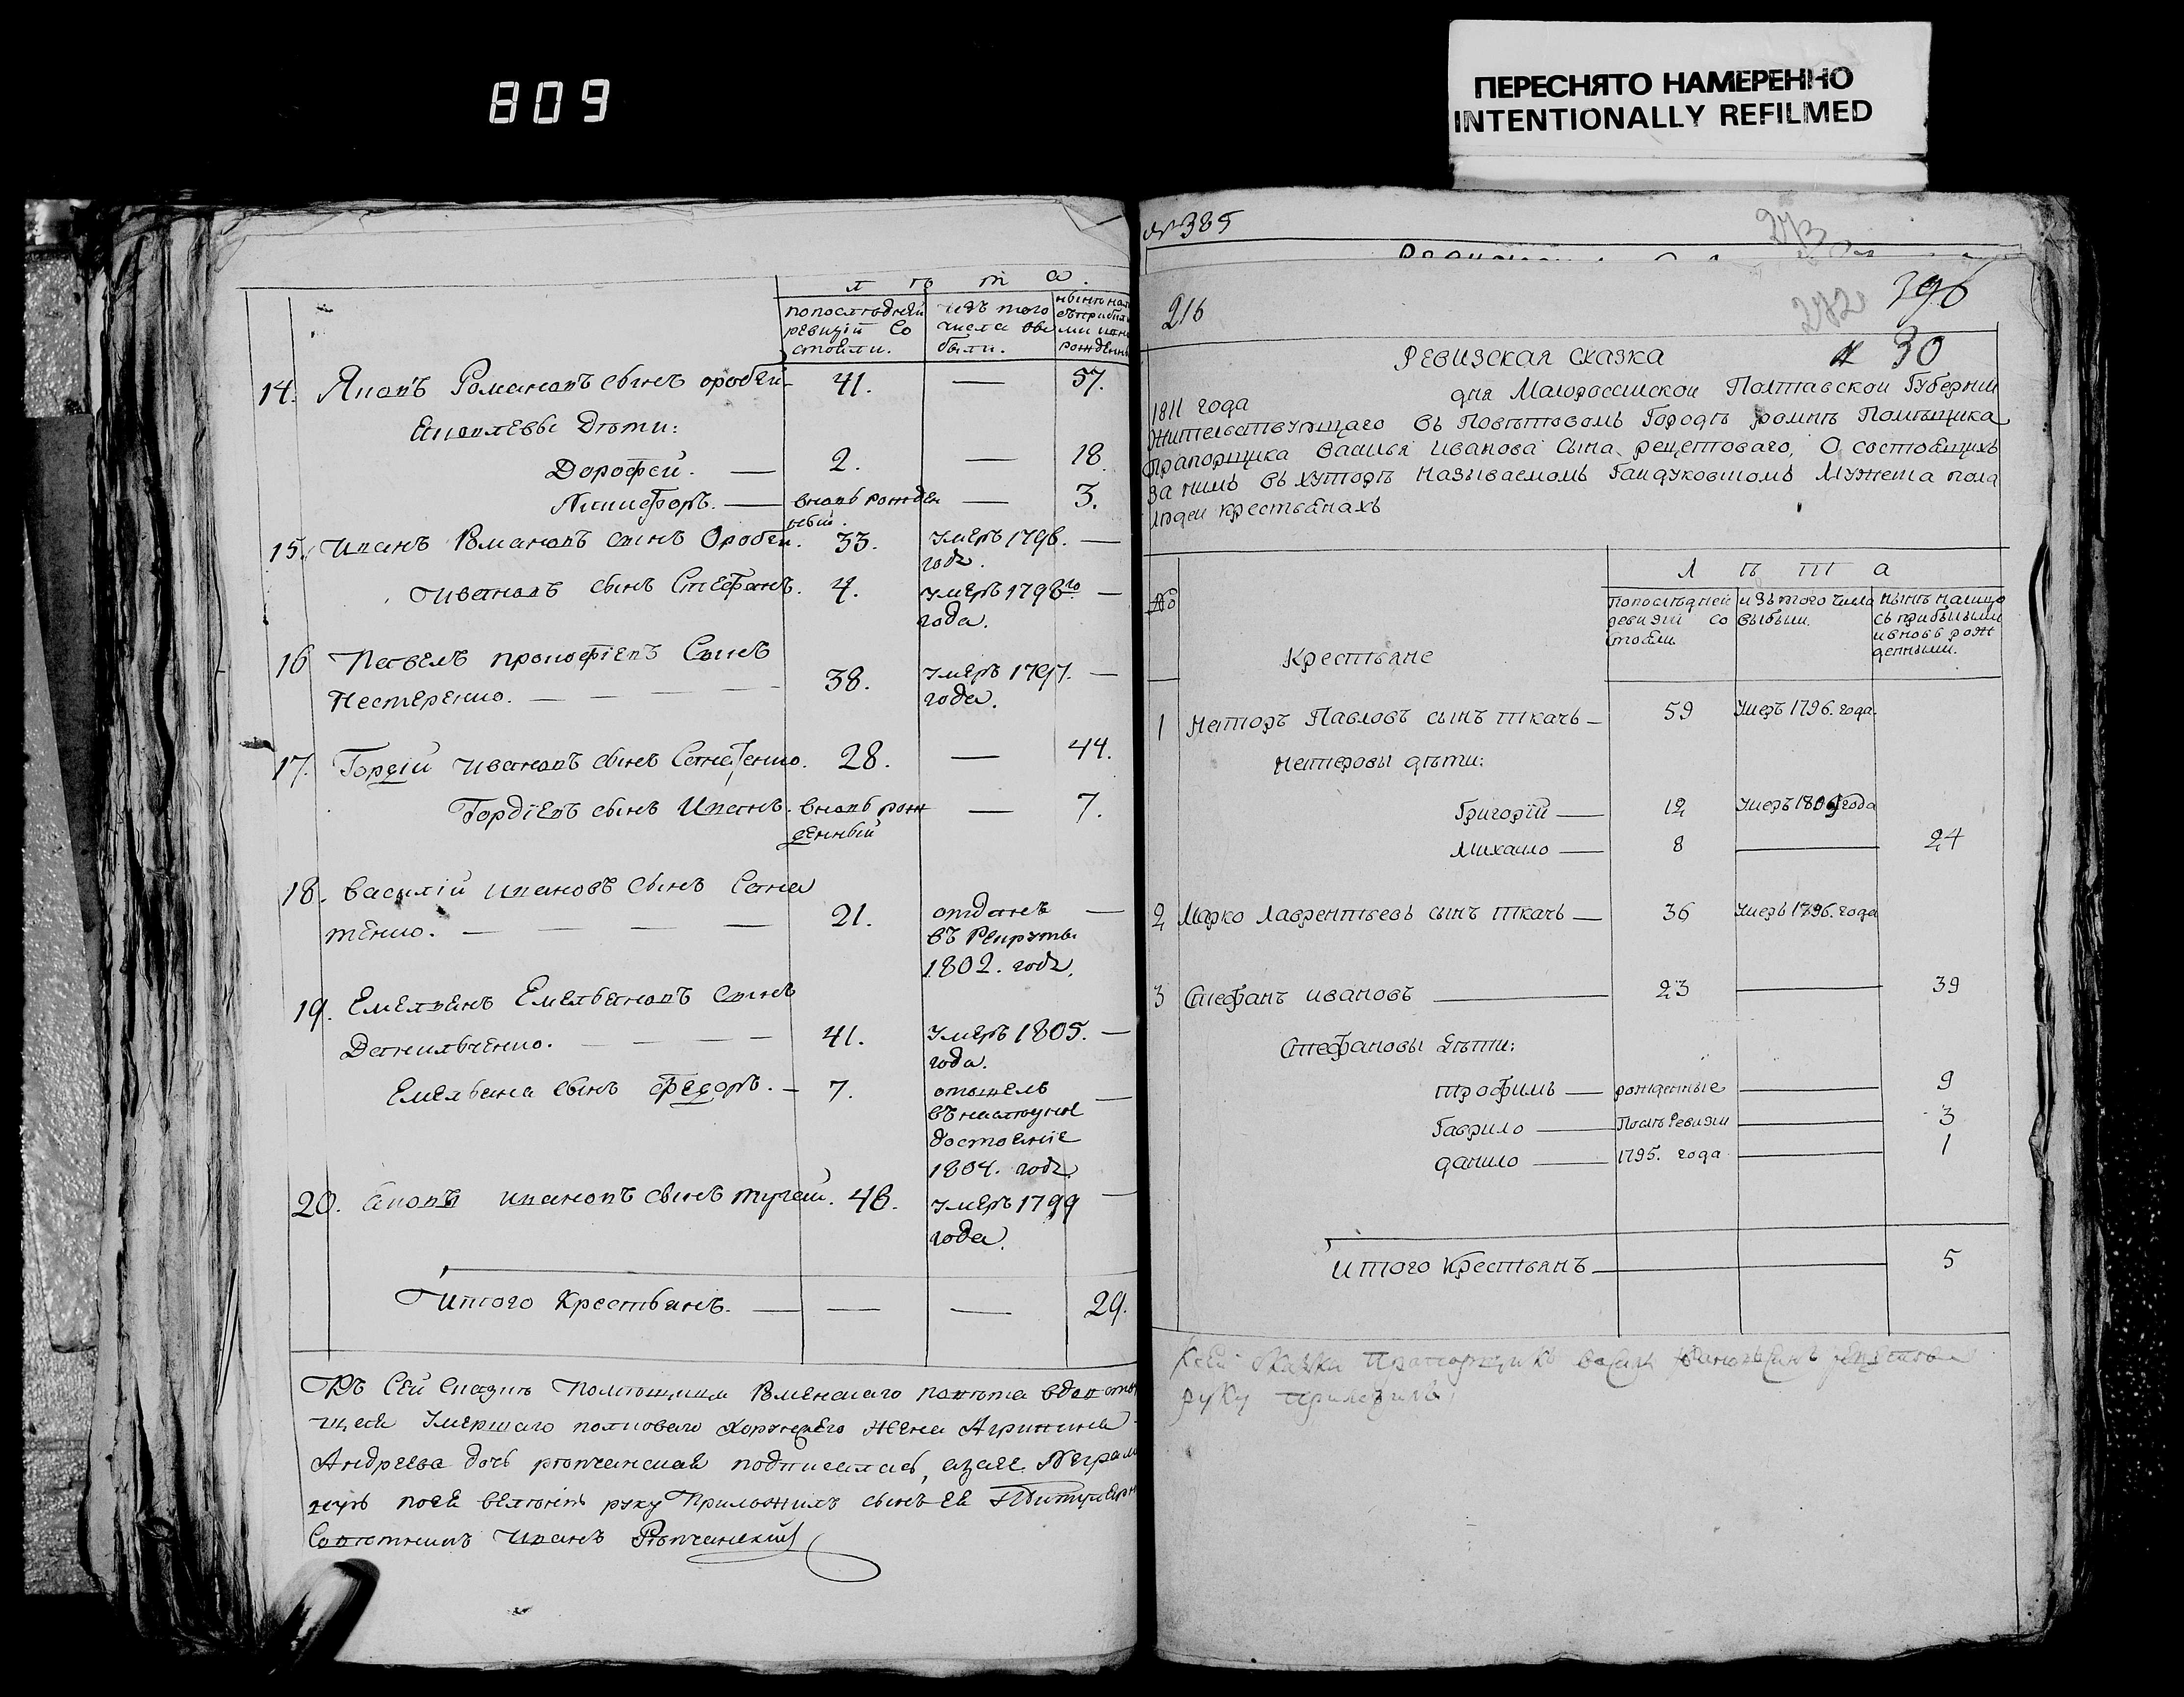 809
ПЕРЕСНЯТО НАМЕРЕННО
INTENTIONALLY REFILMED
л ѣ т а.
попослѣдней ревизіи состояли.
изъ того числа выбыли.
14. Яковъ Романовъ сынъ оробей 41. — 57.
Яковлевы Дѣти:
Дорофей. — 2. — 18
Никифоръ. — вновь рожденный. — 3.
15. Иванъ Романовъ сынъ Оробей. 33. умеръ 1796. годѣ. —
Ивановъ сынъ Стефанъ. 4. умеръ 1796го года. —
16 Павелъ прокофіевъ Сынъ
Нестеренко. — 38. умеръ 1797. года. —
17. Гордій Ивановъ сынъ Сенатенко. 28. — 44.
Гордіевъ сынъ Иванъ. вновь рожденный — 7.
18. Василій Ивановъ Сынъ Сена
тенко. — 21. отданъ въ Рекруты 1802. годѣ. —
19. Емельянъ Емельяновъ Сынъ
Данильченко. — 41. умеръ 1805. года. —
Емельяна сынъ Федоръ. — 7. 1804. годѣ —
20. Иановъ сынъ 48. умеръ 1799 года. —
Итого Крестьянъ. — — — 29.
Къ Сей Сказкѣ Помѣщица Роменскаго повѣта вдовству
щая Умершаго полковаго Хорунжего Жена Агрипина
Андреева дочь рѣпчанская подписалась, азаее Неграм
руку Приложилъ сынъ ея Титулярн
Совѣтникъ Иванъ Рѣпчанскій
№ 385
273
216
272 396
Ревизская сказка № 30
1811 года дня Малороссийской Полтавской Губернии
Жительствующаго въ Повѣтовомъ Городѣ ромнѣ Помѣщика
Прапорщика Василья Иванова Сына рецептоваго, О состоящихъ
за нимъ въ хуторѣ Называемомъ Гайдуковшомъ Мужеска пола
людей крестьянахъ
Л ѣ т а
№
Крестьяне
попослѣдней ревизіи состояли.
изъ того числа выбыли.
нынѣ налицо съ прибылыми и вновь рожденными.
1 Несторъ Павловъ сынъ ткачь — 59 Умеръ 1796. года.
Нестеровы дѣти:
Григорій — 12 Умеръ 1809 года
Михаило — 8 — 24
2 Марко Лаврентьевъ сынъ ткачь — 36 Умеръ 1796. года
3 Стефанъ ивановъ — 23 — 39
Стефановы дѣти:
трофимъ — рожденные — 9
Гаврило — Послѣ Ревизіи — 3
данило — 1795. года — 1
Итого Крестьянъ — 5
Ксей сказки Прапорщикъ Василь
руку приложилъ